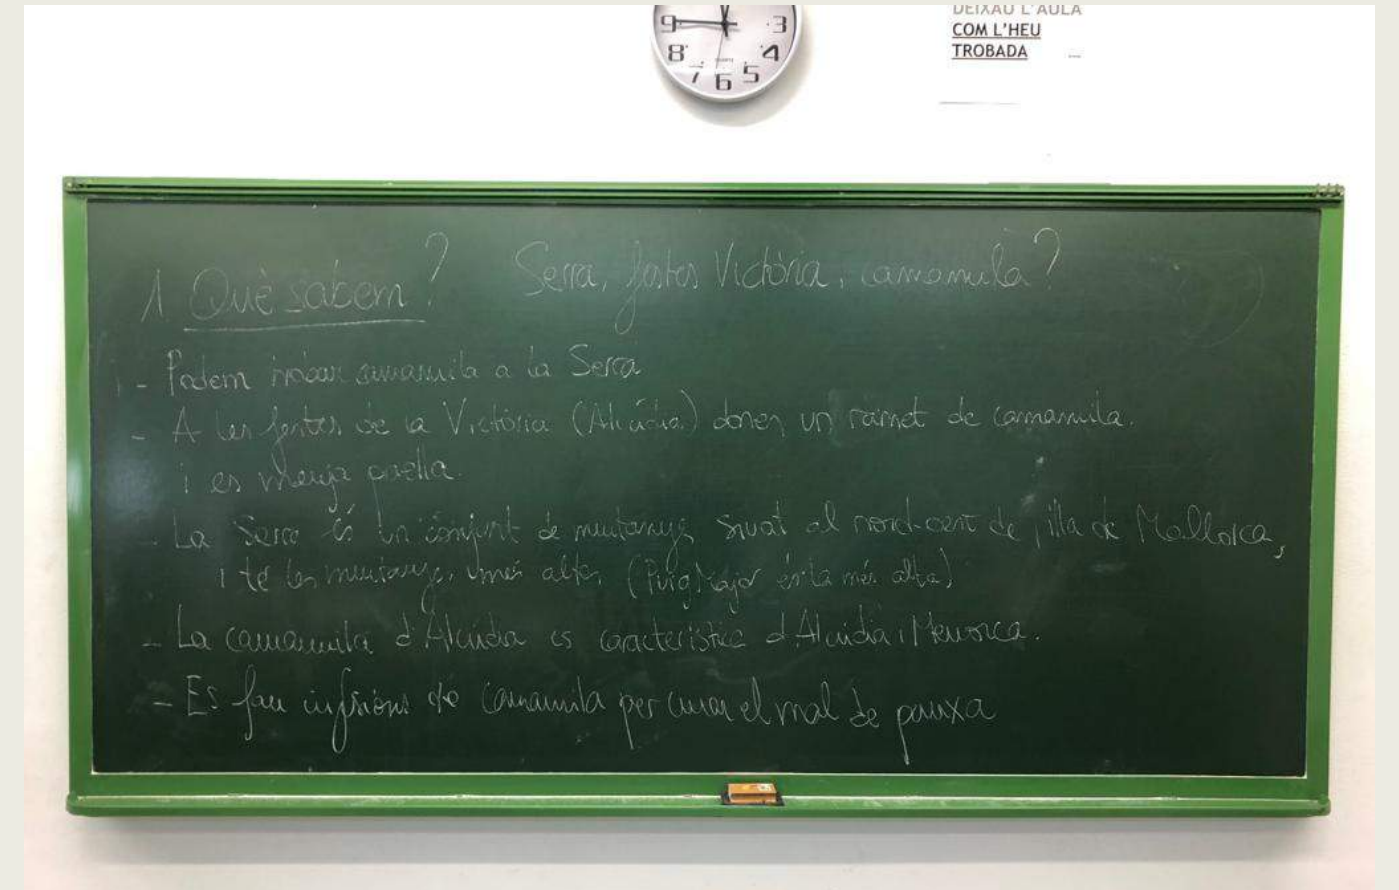 DEIXAU L'AULA
COM L'HEU
TROBADA
9 3
8 4
7 6 5
1 Què sabem? Serra, festes Victòria, camamil·la?
- Podem trobar camamila a la Serra
- A les festes de la Victòria (Alcúdia) donen un ramet de camamila.
i es menja paella.
- La Serra és un conjunt de muntanyes situat al nord-oest de illa de Mallorca,
i té les muntanyes més altes (Puig Major és la més alta)
- La camamila d'Alcúdia es característica d'Alcúdia i Menorca.
- Es fan infusions de camamila per curar el mal de panxa